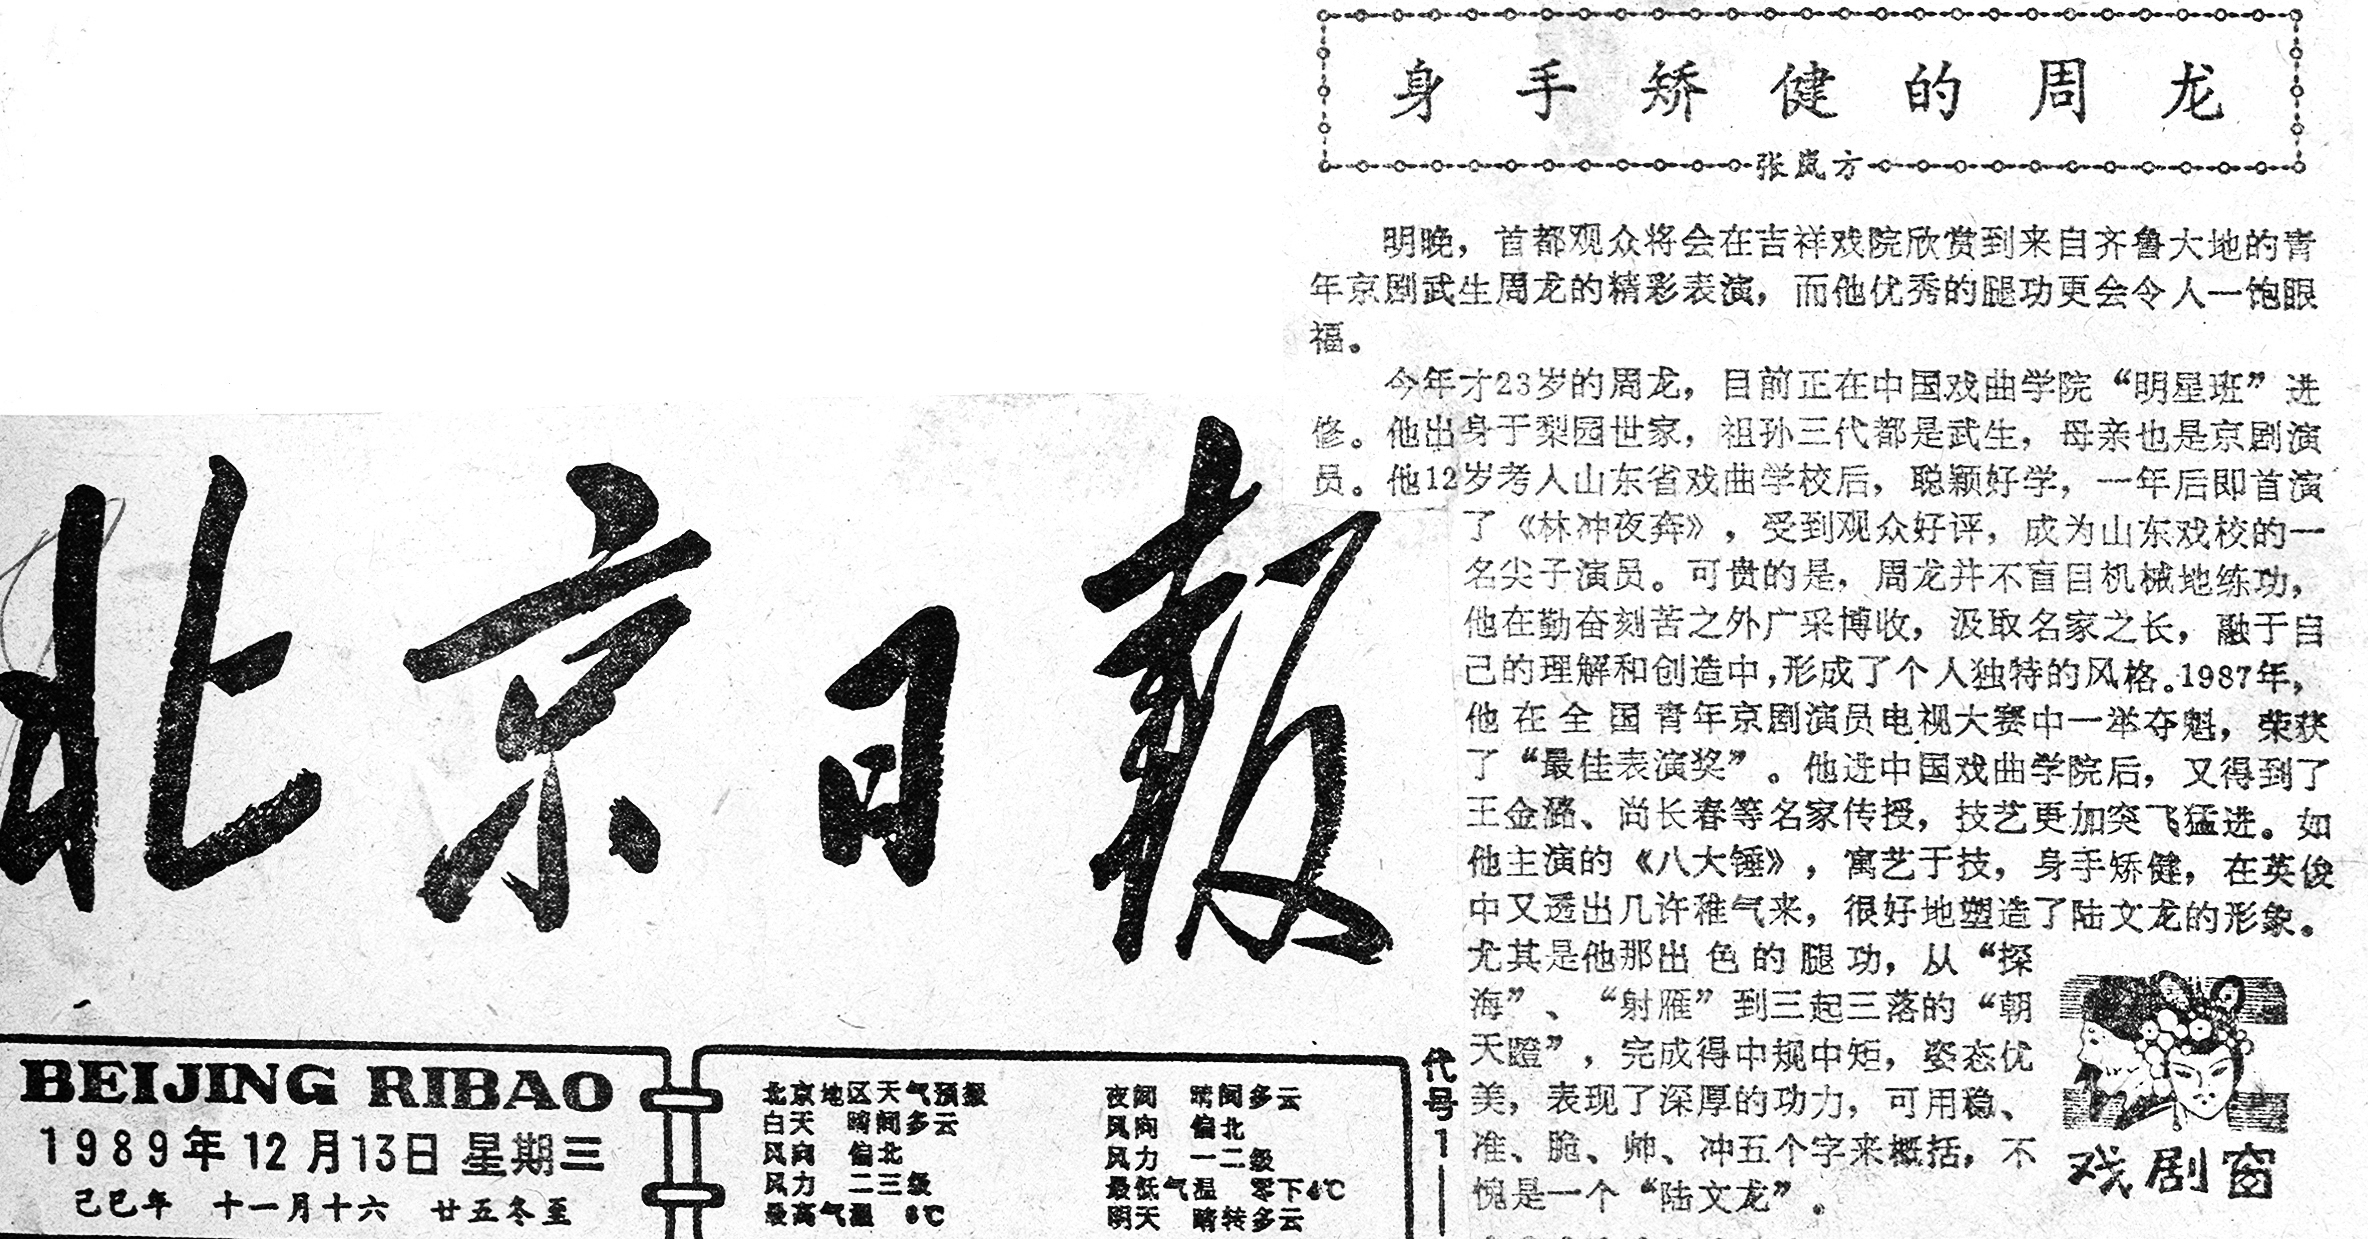 身手矫健的周龙
张岚方
明晚，首都观众将会在吉祥戏院欣赏到来自齐鲁大地的青
年京剧武生周龙的精彩表演，而他优秀的腿功更会令人一饱眼
福。
今年才23岁的周龙，目前正在中国戏曲学院“明星班”进
修。他出身于梨园世家，祖孙三代都是武生，母亲也是京剧演
员。他12岁考人山东省戏曲学校后，聪颖好学，一年后即首演
了《林冲夜奔》，受到观众好评，成为山东戏校的一
名尖子演员。可贵的是，周龙并不盲目机械地练功，
他在勤奋刻苦之外广采博收，汲取名家之长，融于自
己的理解和创造中，形成了个人独特的风格。1987年，
他在全国青年京剧演员电视大赛中一举夺魁，荣获
了“最佳表演奖”。他进中国戏曲学院后，又得到了
王金潞、尚长春等名家传授，技艺更加突飞猛进。如
他主演的《八大锤》，寓艺于技，身手矫健，在英俊
中又透出几许稚气来，很好地塑造了陆文龙的形象。
尤其是他那出色的腿功，从“探
海”、“射雁”到三起三落的“朝
天蹬”，完成得中规中矩，姿态优
美，表现了深厚的功力，可用稳、
准、脆、帅、冲五个字来概括，不
愧是一个“陆文龙”。
戏剧窗
北京日报
BEIJING RIBAO
1989年12月13日 星期三
己巳年 十一月十六 廿五冬至
北京地区天气预报
白天 晴间多云
风向 偏北
风力 二三级
最高气温 6℃
夜间 晴间多云
风向 偏北
风力 一二级
最低气温 零下4℃
明天 晴转多云
代号1—